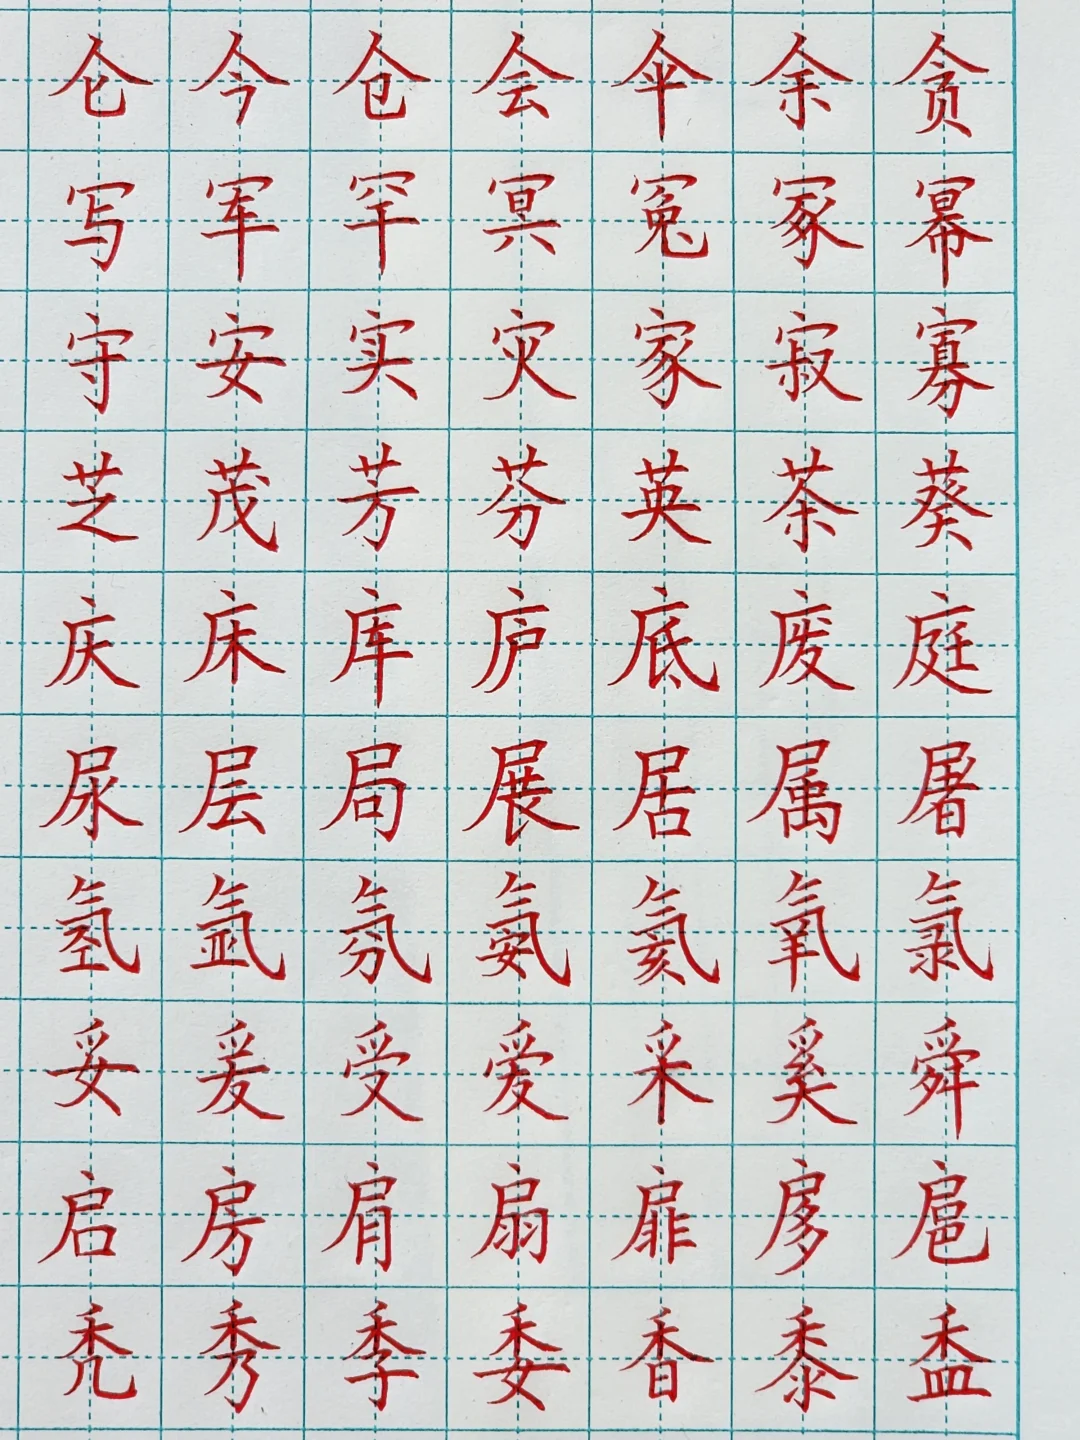 仑今仓会伞余贪
写军罕冥冤冢幂
守安实灾家寂寡
芝茂芳芬英茶葵
庆床库庐底废庭
尿层局展居属屠
氢氩氛氨氦氧氯
妥爰受爱采奚舜
启房肩扇扉扅扈
秃秀季委香黍盉